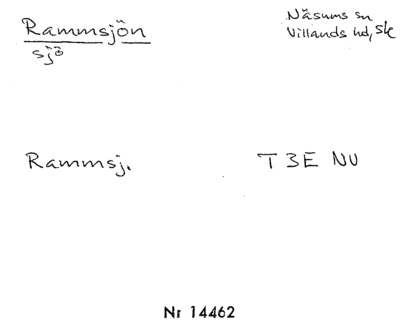 Rammsjön
sjö
Näsums sn
Villands hd, Sk
Rammsj.
T 3E NV
Nr 14462